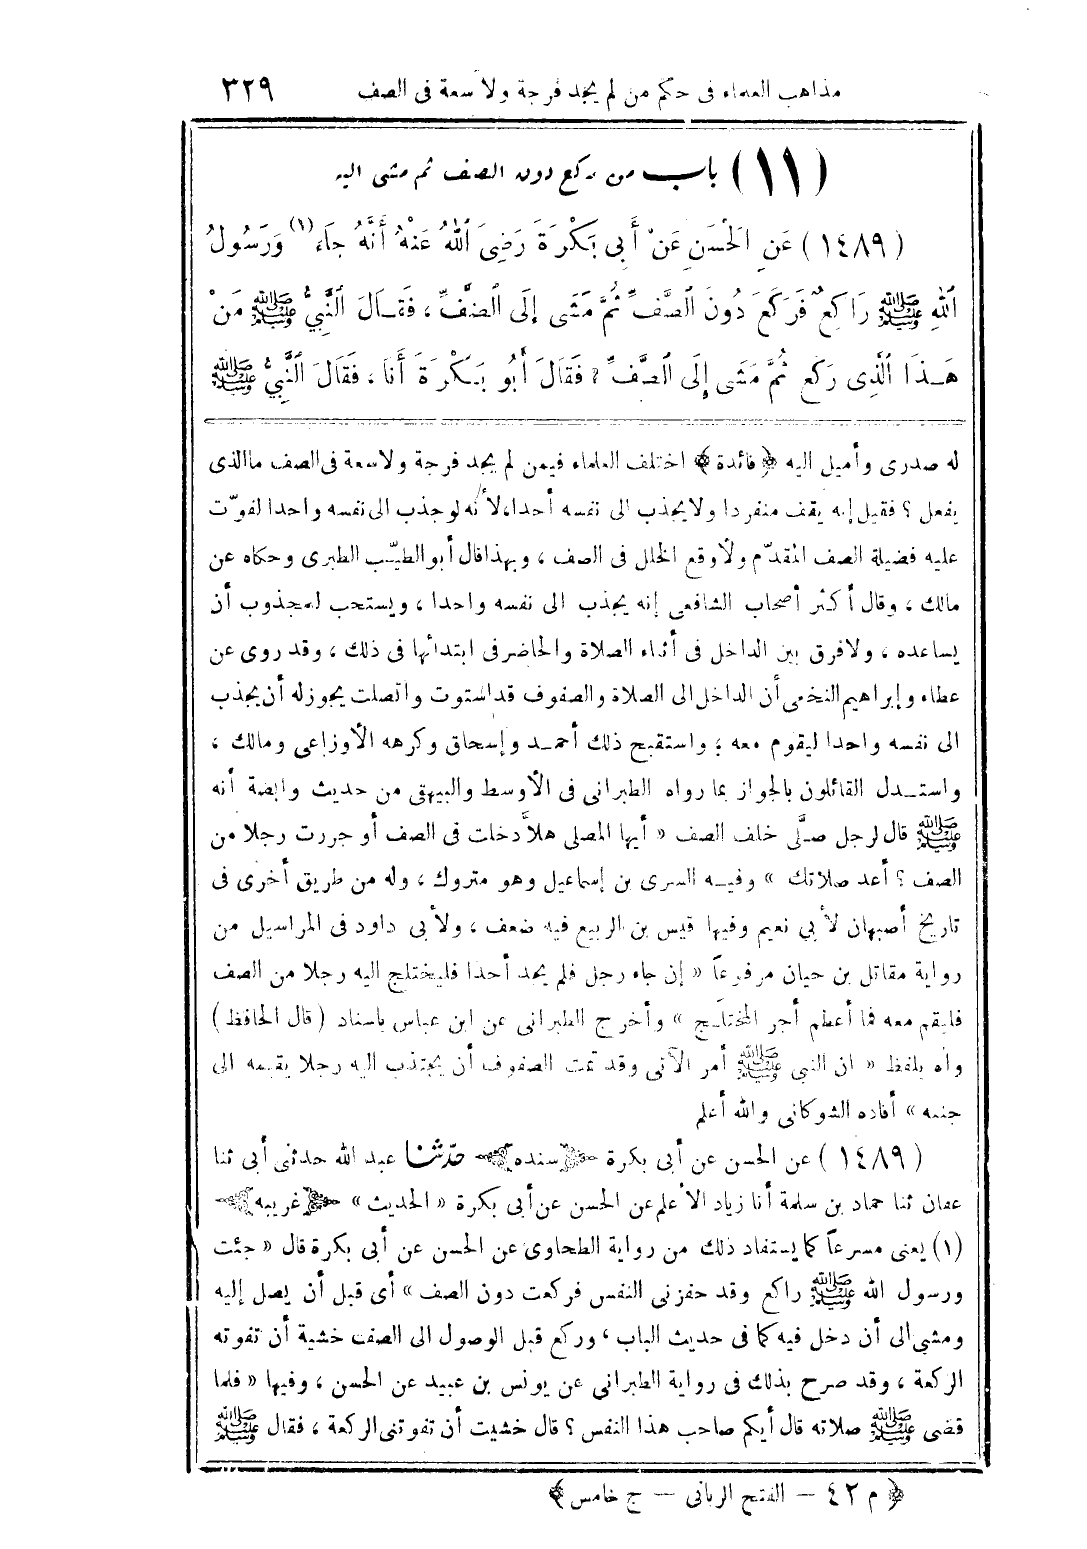 مذاهب العلماء فى حكم من لم يجد فرجة ولا سعة فى الصف ٣٢٩
(١١) باب من ركع دون الصف ثم مشى اليه
(١٤٨٩) عَنِ الْحَسَنِ عَنْ أَبِى بَكْرَةَ رَضِىَ اللهُ عَنْهُ أَنَّهُ جَاءَ (١) وَرَسُولُ
اللهِ ﷺ رَاكِعٌ فَرَكَعَ دُونَ الصَّفِّ ثُمَّ مَشَى إِلَى الصَّفِّ، فَقَالَ النَّبِىُّ ﷺ مَنْ
هَـذَا الَّذِى رَكَعَ ثُمَّ مَشَى إِلَى الصَّفِّ؟ فَقَالَ أَبُو بَـكْرَةَ أَنَا، فَقَالَ النَّبِىُّ ﷺ
له صدرى وأميل اليه ﴿فائدة﴾ اختلف العلماء فيمن لم يجد فرجة ولا سعة فى الصف ما الذى
يفعل؟ فقيل إنه يقف منفردا ولا يجذب الى نفسه أحدا، لأنه لو جذب الى نفسه واحدا لفوّت
عليه فضيلة الصف المقدّم ولأوقع الخلل فى الصف، وبهذا قال أبو الطيّب الطبرى وحكاه عن
مالك، وقال أكثر أصحاب الشافعى إنه يجذب الى نفسه واحدا، ويستحب للمجذوب أن
يساعده، ولا فرق بين الداخل فى أثناء الصلاة والحاضر فى ابتدائها فى ذلك، وقد روى عن
عطاء وإبراهيم النخعى أن الداخل الى الصلاة والصفوف قد استوت واتصلت يجوز له أن يجذب
الى نفسه واحدا ليقوم معه؛ واستقبح ذلك أحمـد وإسحاق وكرهه الأوزاعى ومالك،
واستـدل القائلون بالجواز بما رواه الطبرانى فى الأوسط والبيهقى من حديث وابصة أنه
ﷺ قال لرجل صـلَّى خلف الصف « أيها المصلى هلاَّ دخلت فى الصف أو جررت رجلا من
الصف؟ أعد صلاتك » وفيـه السرى بن إسماعيل وهو متروك، وله من طريق أخرى فى
تاريخ أصبهان لأبي نعيم وفيها قيس بن الربيع فيه ضعف، ولأبى داود فى المراسيل من
رواية مقاتل بن حيان مرفوعاً « إن جاء رجل فلم يجد أحدا فليختلج اليه رجلا من الصف
فليقم معه فما أعظم أجر المختلَـج » وأخرج الطبرانى عن ابن عباس باسناد (قال الحافظ)
واه بلفظ « ان النبى ﷺ أمر الآتى وقد تمت الصفوف أن يجتذب اليه رجلا يقيمه الى
جنبه » أفاده الشوكانى والله أعلم
(١٤٨٩) عن الحسن عن أبى بكرة ﴿سنده﴾ حدّثنا عبد الله حدثنى أبى ثنا
عفان ثنا حماد بن سلمة أنا زياد الأعلم عن الحسن عن أبى بكرة « الحديث » ﴿غريبه﴾
(١) يعنى مسرعاً كما يستفاد ذلك من رواية الطحاوى عن الحسن عن أبى بكرة قال « جئت
ورسول الله ﷺ راكع وقد حفزنى النفس فركعت دون الصف » أى قبل أن يصل إليه
ومشى الى أن دخل فيه كما فى حديث الباب، وركع قبل الوصول الى الصف خشية أن تفوته
الركعة، وقد صرح بذلك فى رواية الطبرانى عن يونس بن عبيد عن الحسن، وفيها « فلما
قضى ﷺ صلاته قال أيكم صاحب هذا النفس؟ قال خشيت أن تفوتنى الركعة، فقال ﷺ
﴿م ٤٢ — الفتح الربانى — ج خامس﴾